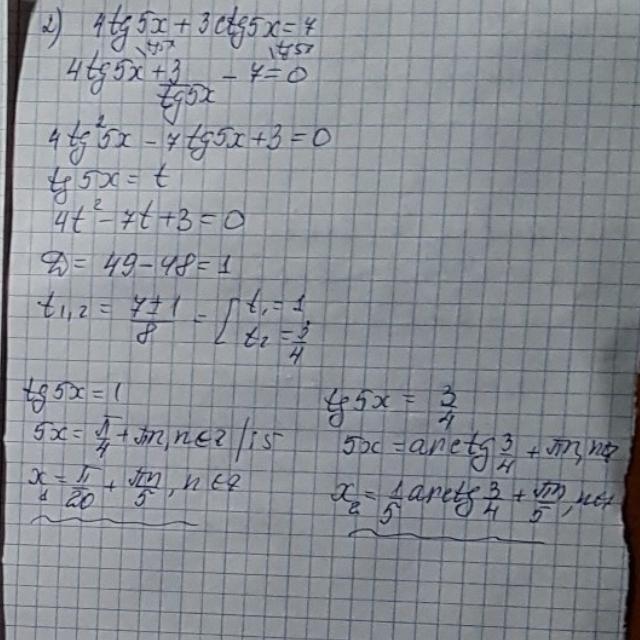 2) 4tg5x + 3ctg5x = 7
4tg5x + 3/tg5x - 7 = 0
4tg²5x - 7tg5x + 3 = 0
tg5x = t
4t² - 7t + 3 = 0
D = 49 - 48 = 1
t₁,₂ = (7±1)/8 = [ t₁ = 1
t₂ = 3/4
tg5x = 1
5x = π/4 + πn, n∈z | :5
x₁ = π/20 + πn/5, n∈z
tg5x = 3/4
5x = arctg 3/4 + πn, n∈z
x₂ = 1/5 arctg 3/4 + πn/5, n∈